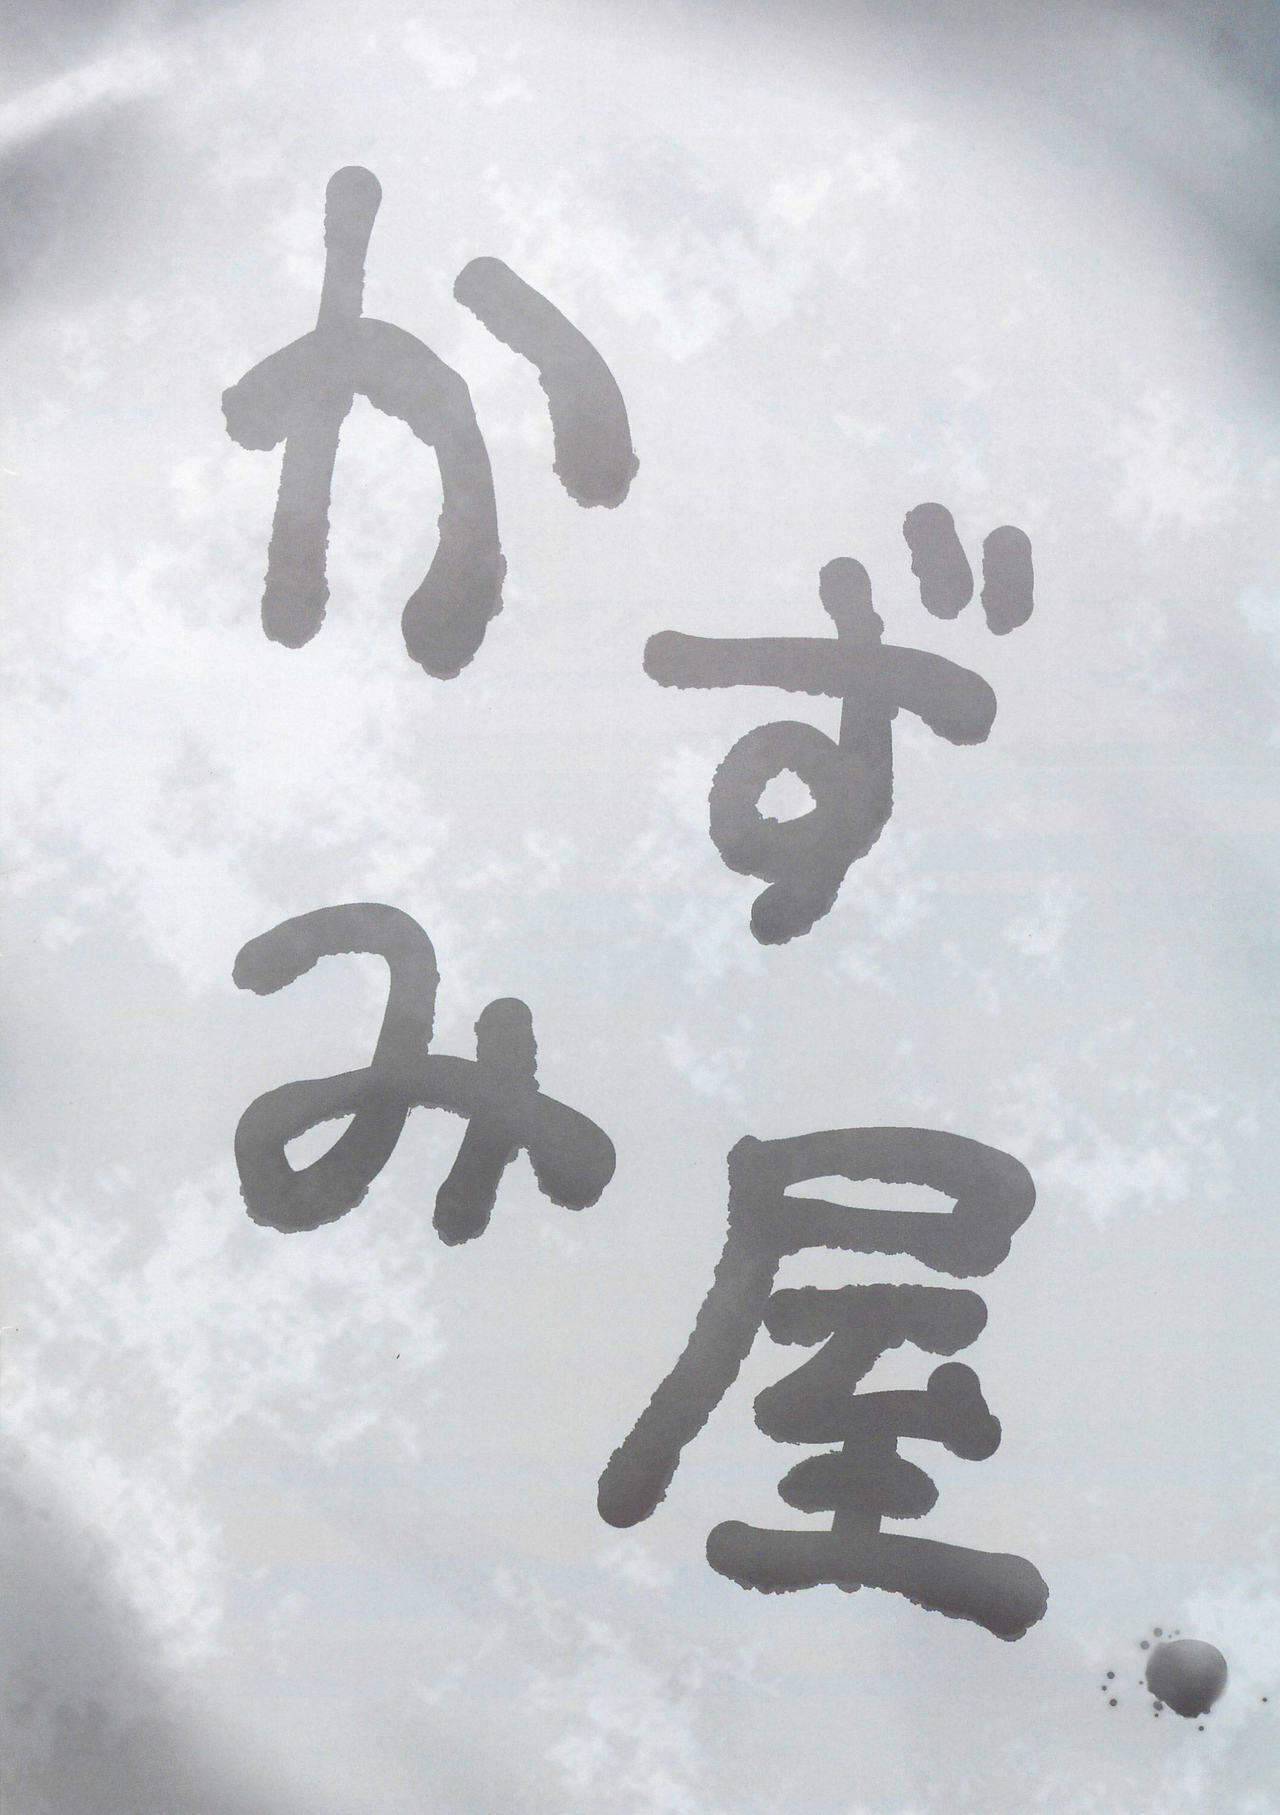 かずみ屋